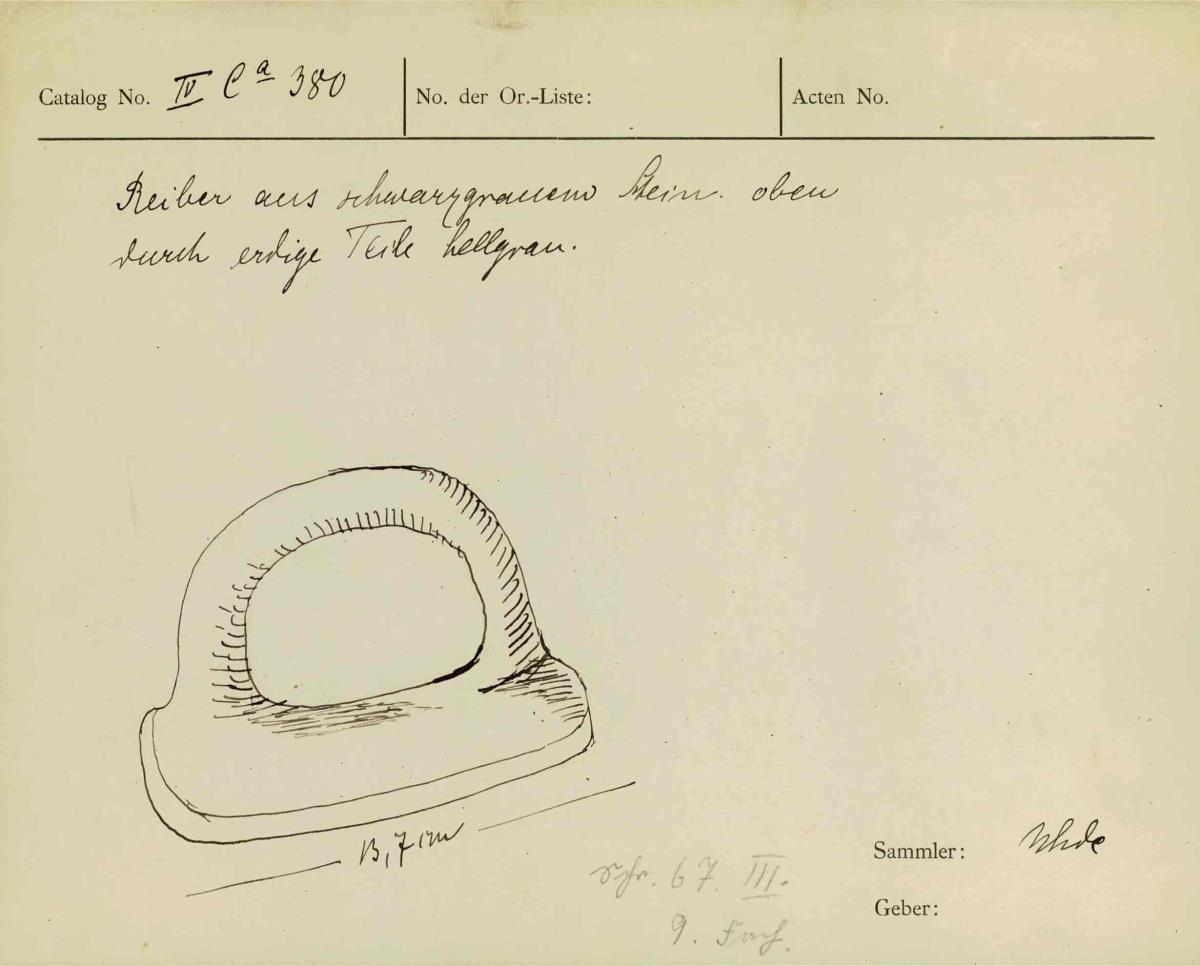 Catalog No. IV Ca 380
No. der Or.-Liste:
Acten No.
Reiber aus schwarzgrauem Stein. oben
durch erdige Teile hellgrau.
13,7 cm
Sammler: Uhde
Schr. 67. III.
9. Fach.
Geber: